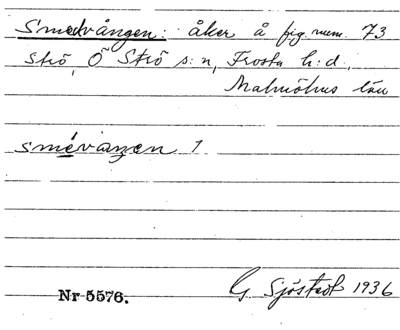 Smedvången: åker å fig. num. 73
Strö, Ö Strö s:n, Frosta h:d,
Malmöhus län
smévaŋen 1
Nr 5576. G Sjöstedt 1936